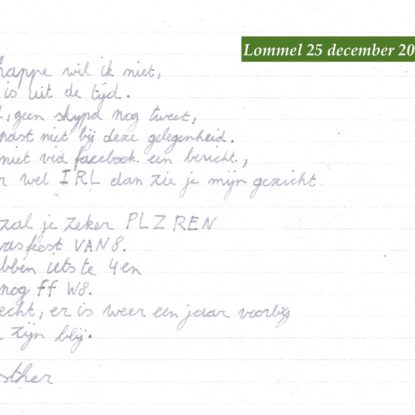 Lommel 25 december 20
happe wil ik niet,
is uit de tijd.
, geen skypd nog tweet,
niet bij deze gelegenheid.
niet via facebook een bericht,
wel IRL dan zie je mijn gezicht
zal je zeker PLZREN
feest VAN8.
bben iets te 4en
nog ff W8.
echt, er is weer een jaar voorbij
zijn blij.
sther